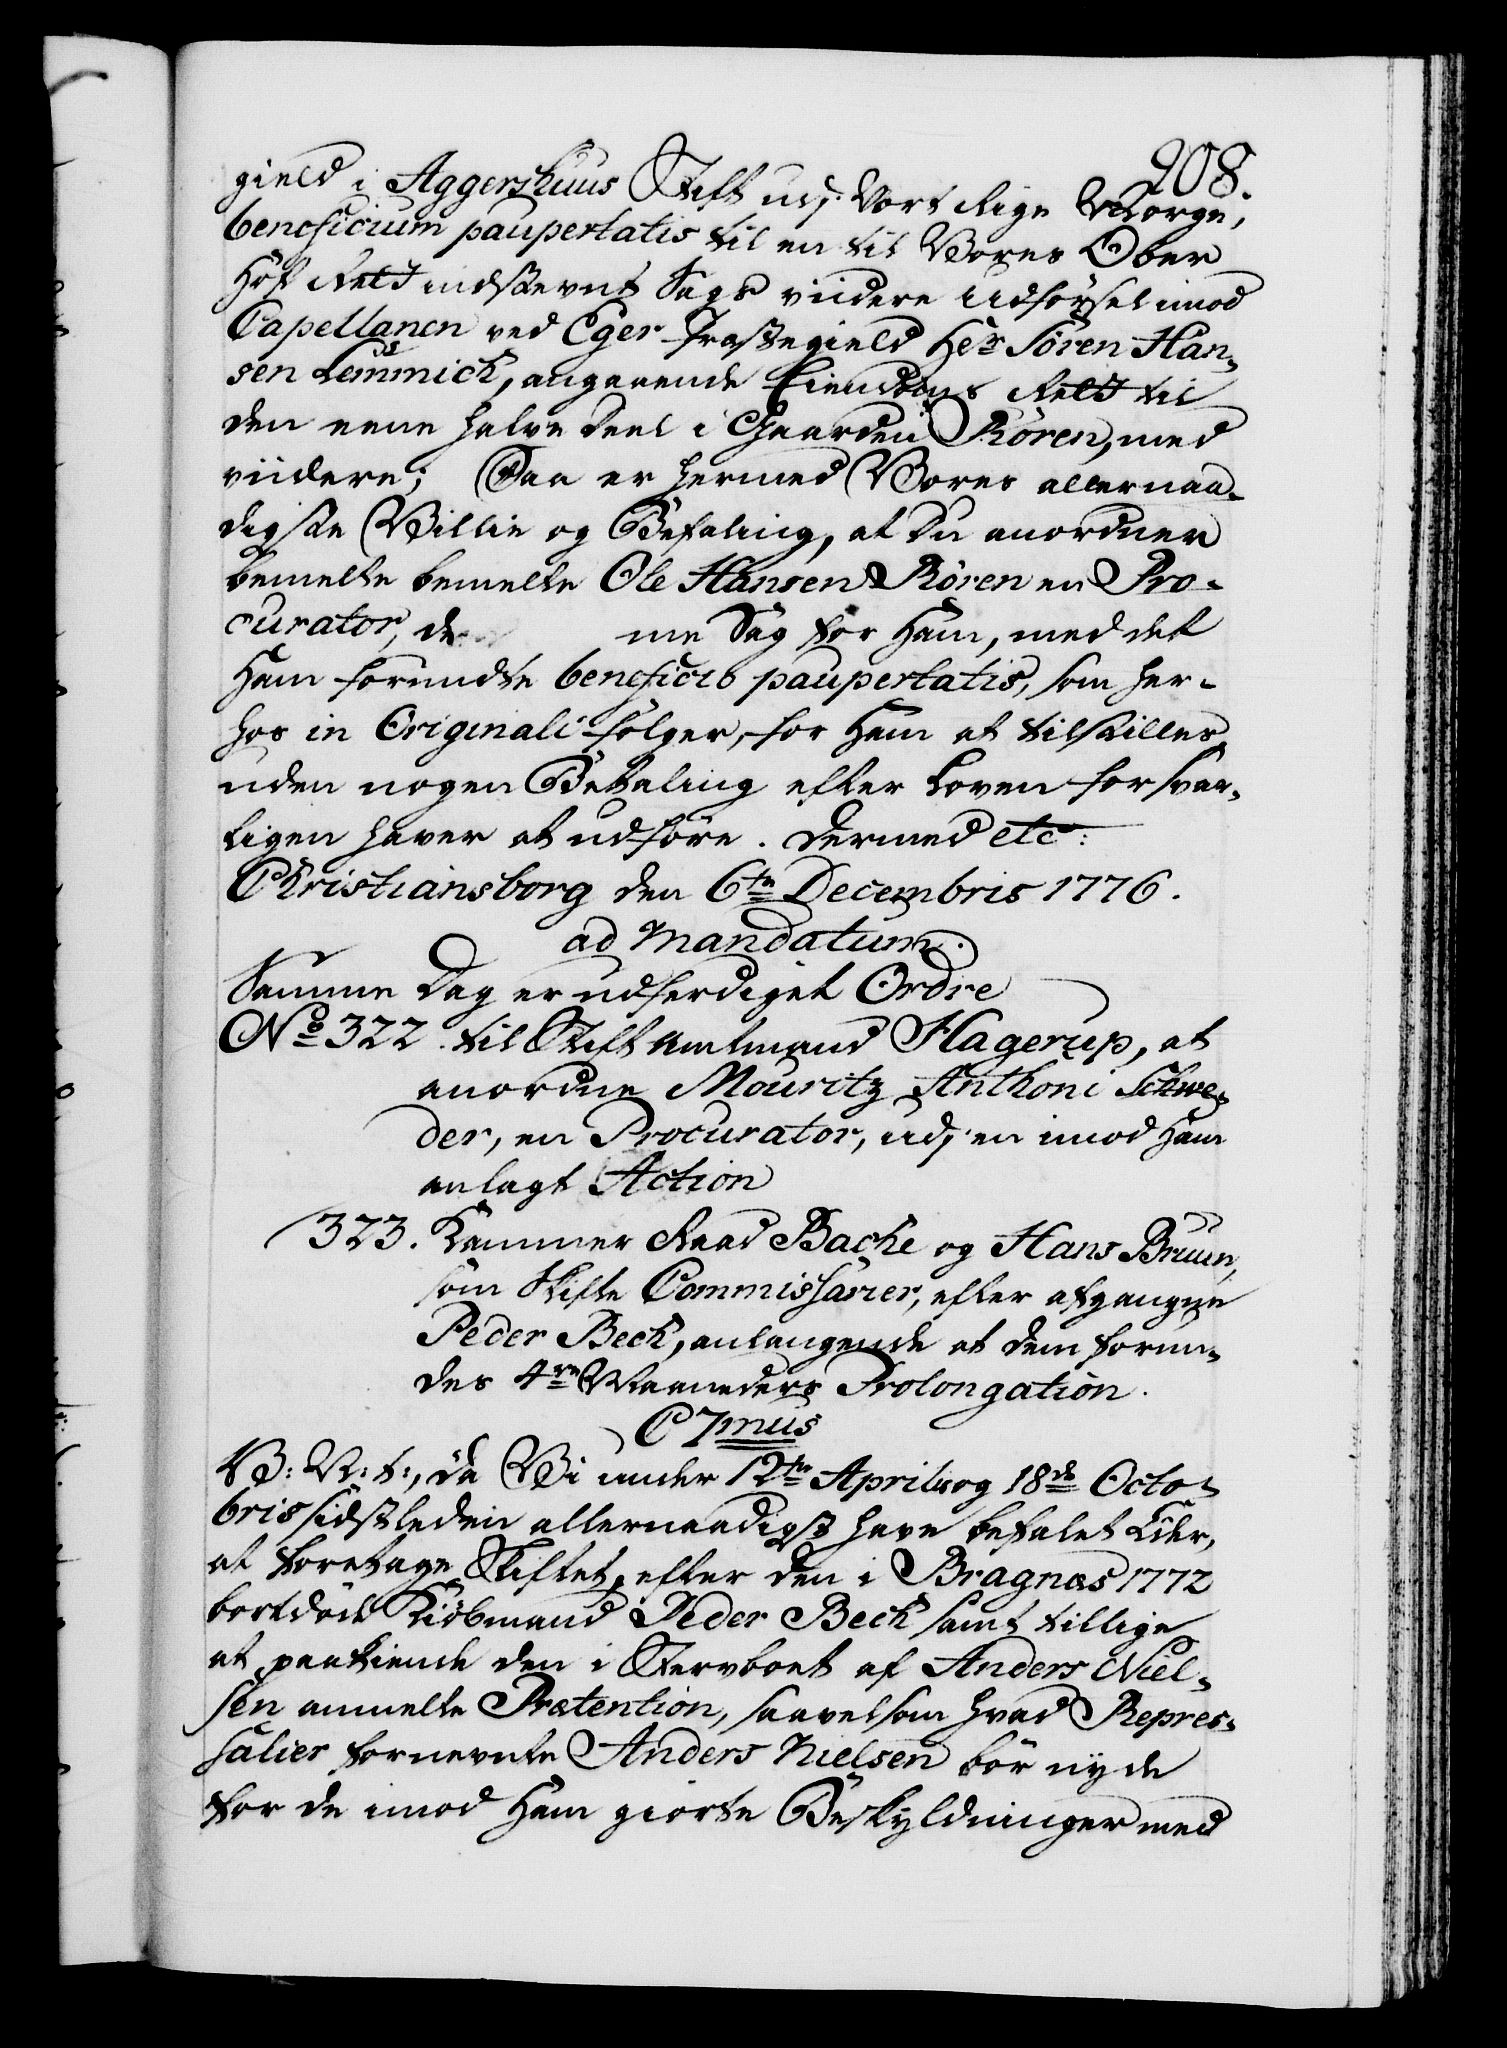 208.
gield i Aggershuus Stift udj Vort Rige Norge,
beneficium paupertatis til en til Vores Ober
Hof Rett indstevnt Sags viidere Udförsel imod
Capellanen ved Eger Præstegield Her Sören Han-
sen Lemmich, angaaende Eiendoms Rett til
den eene halve Deel i Gaarden Rören, med
viidere; Saa er hermed Vores allernaa-
digste Villie og Befaling, at Du anordner
bemelte bemelte Ole Hansen Rören en Pro-
curator, de me Sag for Ham, med det
Ham forundte beneficio paupertatis, som her-
hos in Originali fölger, for Ham at tilstilles,
uden nogen Betaling efter Loven forsvar-
ligen haver at udföre. Dermed etc:
Christiansborg den 6te Decembris 1776.
ad Mandatum.
Samme Dag er udferdiget Ordre
No 322. til Stiftamtmand Hagerup, at
anordne Mouritz Anthoni Schwe-
der, en Procurator, udj en imod Ham
anlagt Action
323. Kammer Raad Bache og Hans Bruun,
som Skifte Commissarier, efter afgangne
Peder Beck, anlangende at dem forun-
des 4re Maaneders Prolongation.
C7mus
V: N: t:, da Vi under 12te Aprilis og 18de Octo-
bris sidstleden allernaadigst have befalet Eder,
at foretage Skiftet, efter den i Bragnæs 1772
bortdöde Kiöbmand Peder Beck samt tillige
at paakiende den i Stervboet af Anders Niel-
sen anmelte Prætention, saavelsom hvad Repres-
salier fornevnte Anders Nielsen bör nyde
for de imod Ham giorte Beskyldninger med